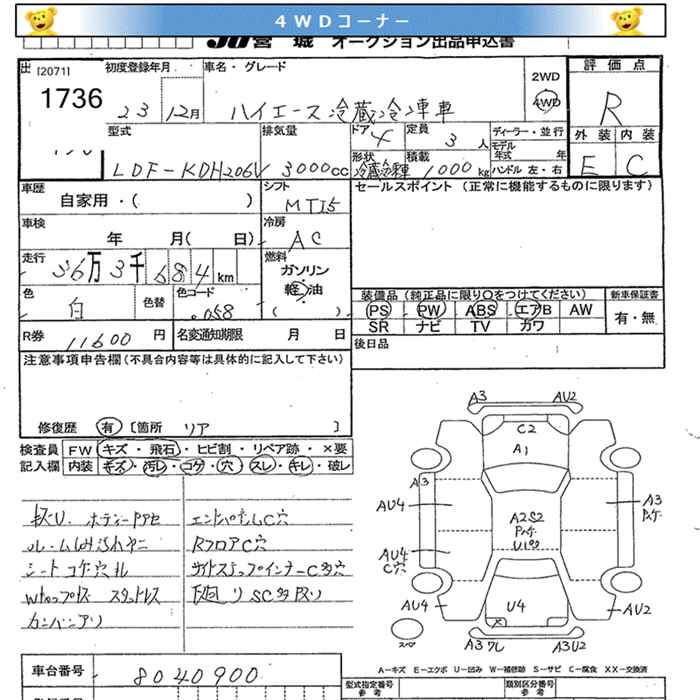 4WDコーナー
JU宮城 オークション出品申込書
出 [2071] 初度登録年月 車名・グレード 2WD 評価点
1736 23 12月 ハイエース冷蔵冷凍車 4WD R
型式 排気量 ドア 4 定員 3 人 ディーラー・並行 外装 内装
LDF-KDH206V 3000cc 形状 積載 1000 kg モデル年式 年 ハンドル 左・右 E C
車歴 シフト セールスポイント (正常に機能するものに限ります)
自家用・( ) MTI5
車検 冷房
年 月( 日) AC
走行 燃料
56万3千684km ガソリン
色 色替 色コード 軽油 装備品 (純正品に限り○をつけてください) 新車保証書
白 058 ( ) PS PW ABS エアB AW 有・無
R券 11600 円 名変通知期限 月 日 SR ナビ TV カワ
注意事項申告欄 (不具合内容等は具体的に記入して下さい) 後日品
修復歴 有 [箇所 リア ]
検査員 FW キズ・飛石・ヒビ割・リペア跡・×要
記入欄 内装 キズ・汚レ・コゲ・穴・スレ・キレ・破レ
エンドパネルC穴
RフロアC穴
シートコゲ穴
スタットレス
カンバンアリ
A3 AU2
C2
A1
A3
AU4 A3
A2S2
AU4 U1
C穴
AU4 U4 AU2
スペ
A3 A3U2
A-キズ E-エクボ U-凹み W-補修跡 S-サビ C-腐食 XX-交換済
車台番号 8040900 型式指定番号 参考 類別区分番号 参考